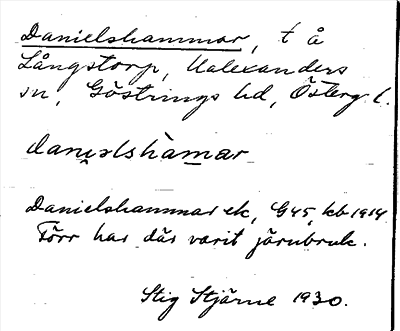 Danielshammar, t å
Långstorp, Valexanders
sn, Göstrings hd, Österg. l.
danielshàmar
Danielshammar ek, G45, kb 1914
Förr har där varit järnbruk.
Stig Stjärne 1930.